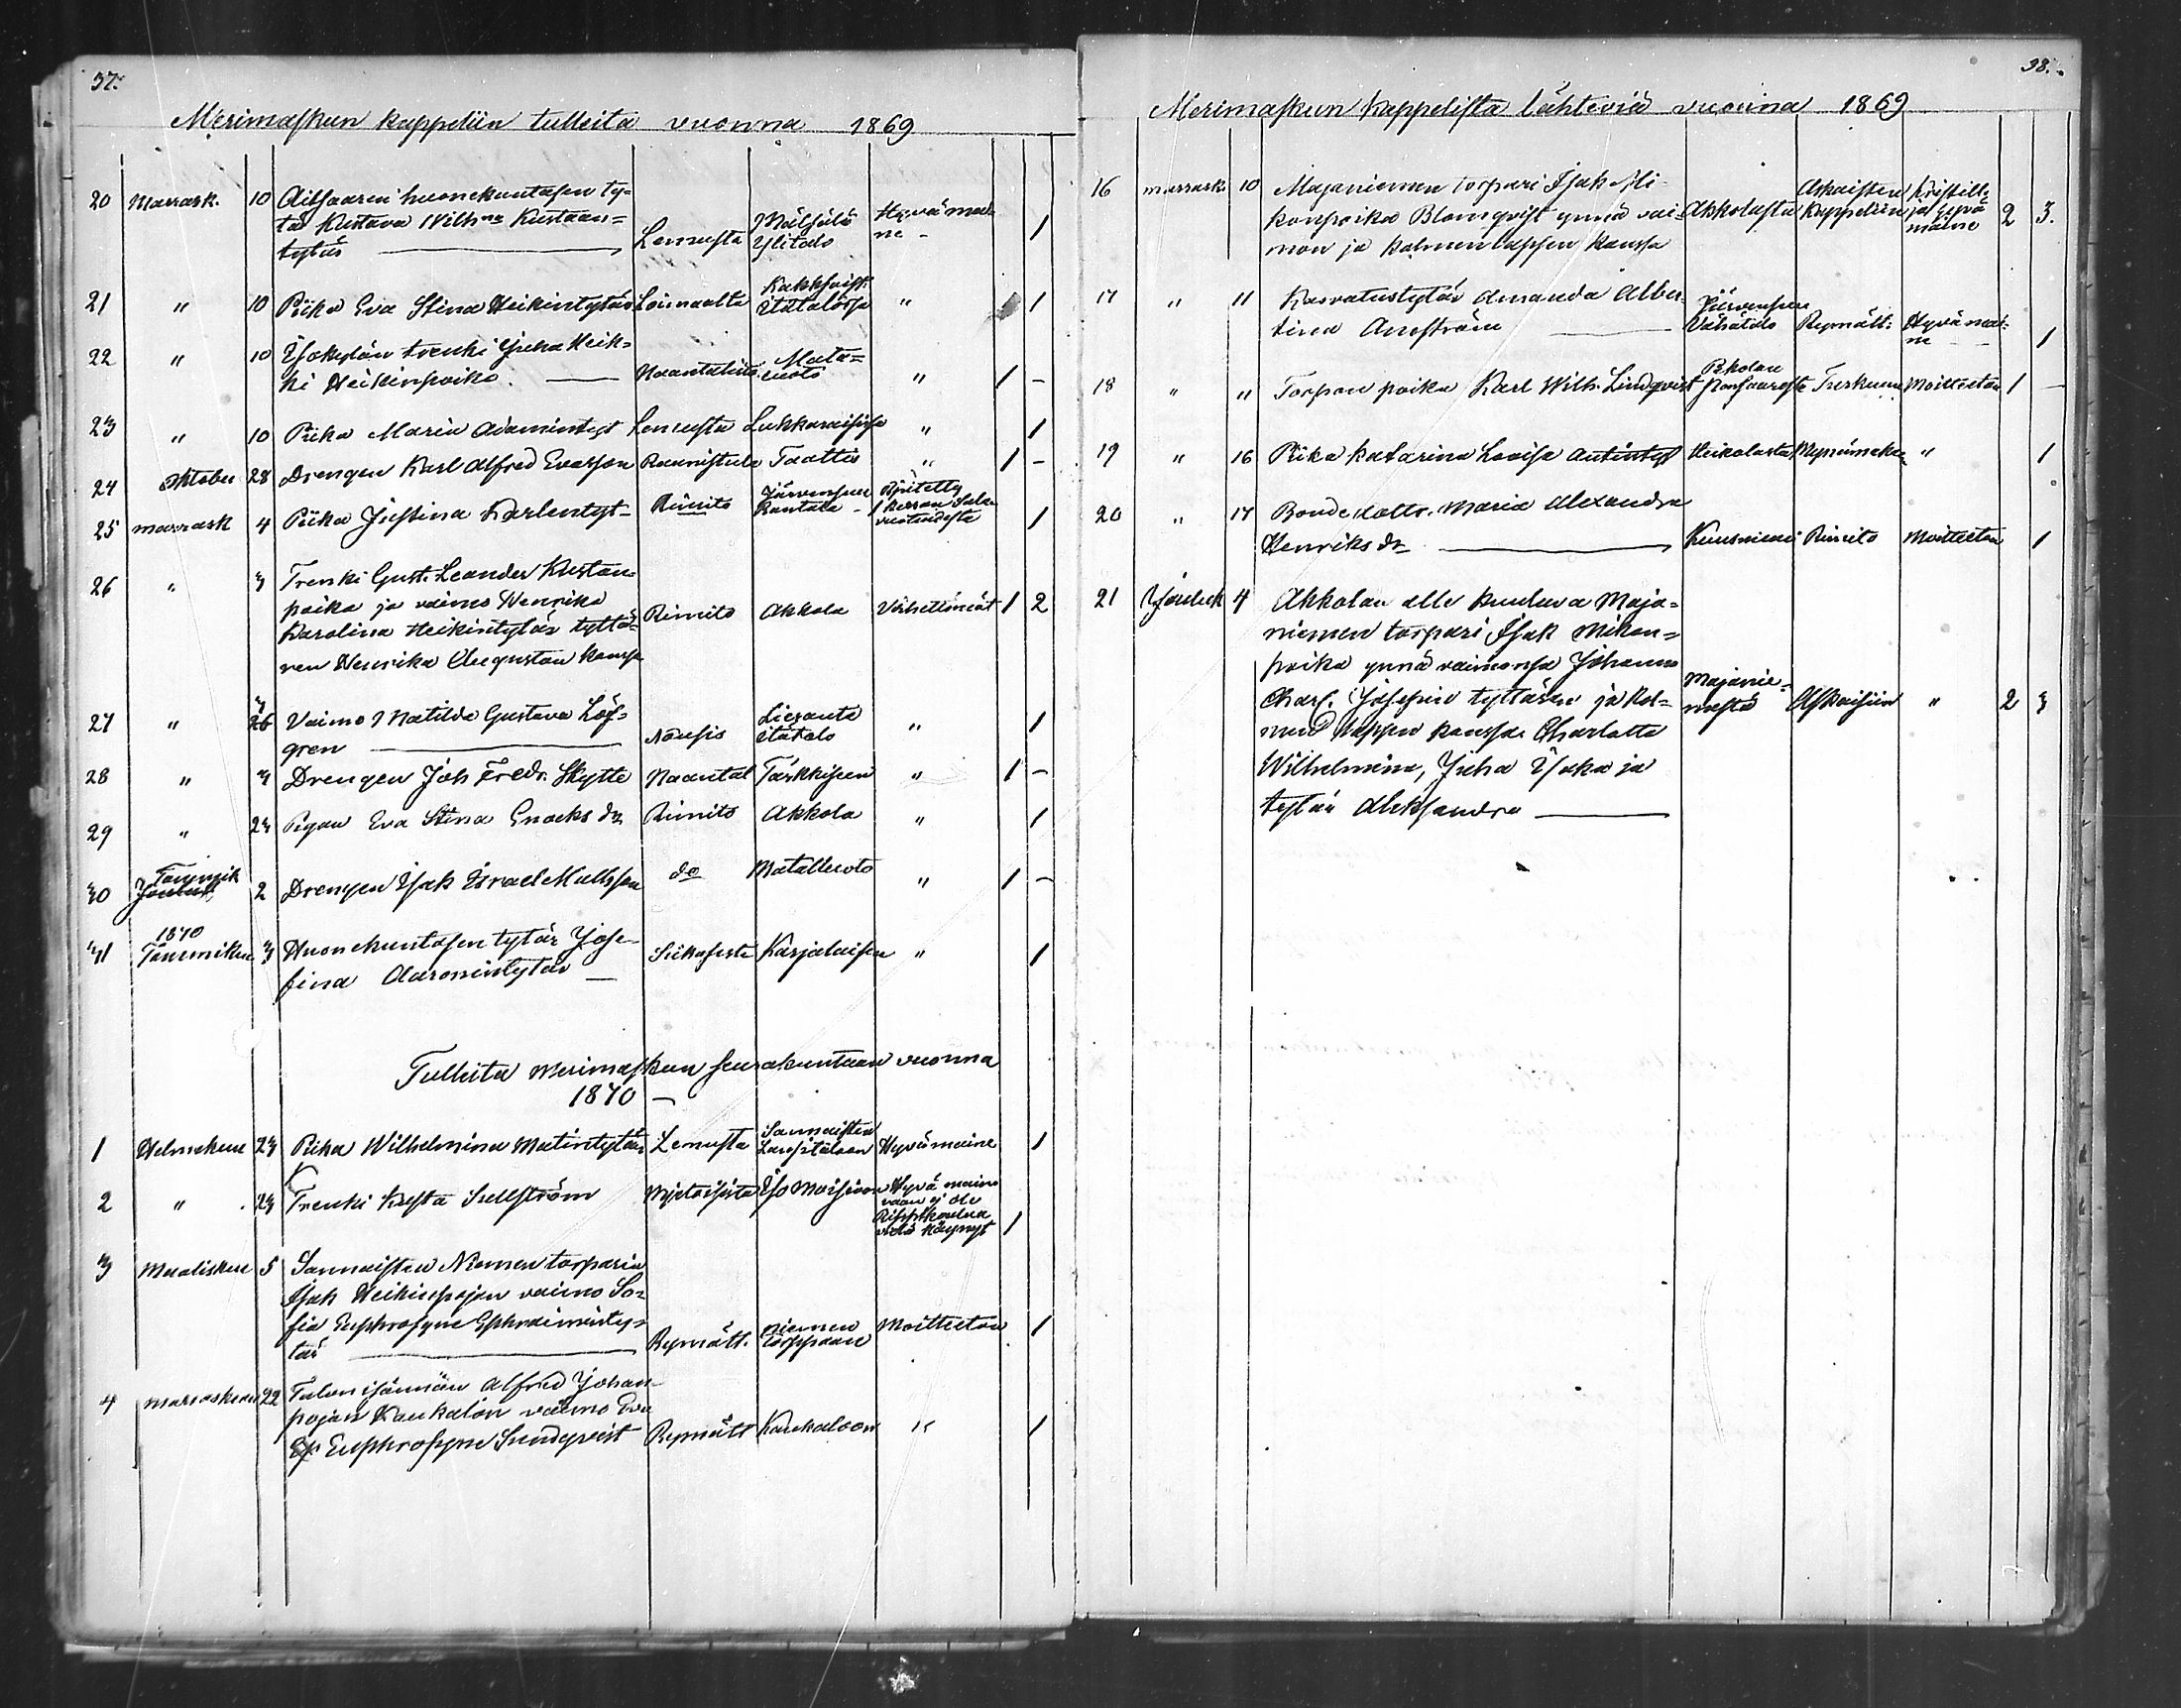 37.
Merimaskun kappeliin tulleita vuonna 1869
20 Marrask. 10 huonekuntasen ty=
tär Kustava Wilh:na Kustaan=
tytär Lemusta Ylitalo Hyvämai=
ne - 1
21 " 10 Piika Eva Stina Heikintytär Loimaalta Itätalossa " 1
22 " 10 Isokylän trenki Juha Heik=
ki Heikinpoika Naantalista Mata=
luoto " 1 -
23 " 10 Piika Maria Adamintyt Lemusta Lukkaraisissa " 1
24 Oktober 28 Drengen Karl Alfred Evasson Raunistula Taattis " 1 -
25 marrask 4 Piika Justina Karlentyt Rimito Järvensuu
Rantala - Ripitetty
1 kerran 1
26 " 3 Trenki Gust. Leander Kustan=
poika ja vaimo Henrika
Karolina Heikintytär tyttä=
ren Henrika Augustan kanssa Rimito Akkola 1 2
27 " 26 Vaimo Matilda Gustava Löf=
gren Nousis Lieranta
Itätalo " 1
28 " 3 Drengen Joh Fredr. Skytte Naantal Tärkkisen " 1 -
29 " 23 Pigan Eva Stina Enocks dr Rimito Akkola " 1
30 Tammik
Jouluk 2 Drengen Isak Israel Mattsson do Mataluoto " 1 -
31 1870
Tammikuu 3 Huonekuntasen tytär Jose=
fina Aaronintytär Karjalaisen " 1
Tulleita Merimaskun seurakuntaan vuonna
1870 -
1 Helmekuu 23 Piika Wilhelmina Matintytär Lemusta Sannaisten
Lausitaloon Hyvämaine 1
2 " 23 Trenki Kusta Sullström Mietoisista Iso Moisioon Hyvä maine
vaan ej ole
Rippikoulua
vielä käynyt 1
3 Maaliskuu 5 Sannaisten Niemen torparin
Isak Heikinpojan vaimo So=
fia Euphrosyne Ephraiminty=
tär Rymätt. niemen
torppaan Moitteeton 1
4 marraskuu 22 Talon isännän Alfred Johan
pojan Kaukalon vaimo Eva
Euphrosyne Sundqvist Rymätt Kaukaloon " 1
38.
Merimaskun kappelista lähteviä vuonna 1869
16 marrask 10 Majaniemen torpari Isak Mi=
konpoika Blomqvist ynnä vai=
mon ja kolmen lapsen kanssa Akkolasta Askaisten
Kappeliin Kristill.
ja hyvä
maine 2 3.
17 " 11 Kasvatustytär Amanda Alber=
tina Järvensuu
Vähätalo Rymätt. Hyvämai=
ne 1
18 " " Torpan poika Karl Wilh. Lindqvist Turkuun Moitteeton 1 -
19 " 16 Piika Katarina Lovisa Antintyt Heikolasta Mynämäkeen " 1
20 " 17 Bondedottr. Maria Alexandra
Henriks dr Kuusniemi Rimito Moitteeton 1
21 Jouluk 4 Akkolan alle kuuluva Maja=
niemen torpari Isak Mikon=
poika ynnä vaimonsa Johanna
Charl. Josepin tyttären ja kol=
men lapsen kanssa Charlotta
Wilhelmina, Juha Isaka ja
tytär Aleksandra Majanie=
mestä Askaisiin " 2 3